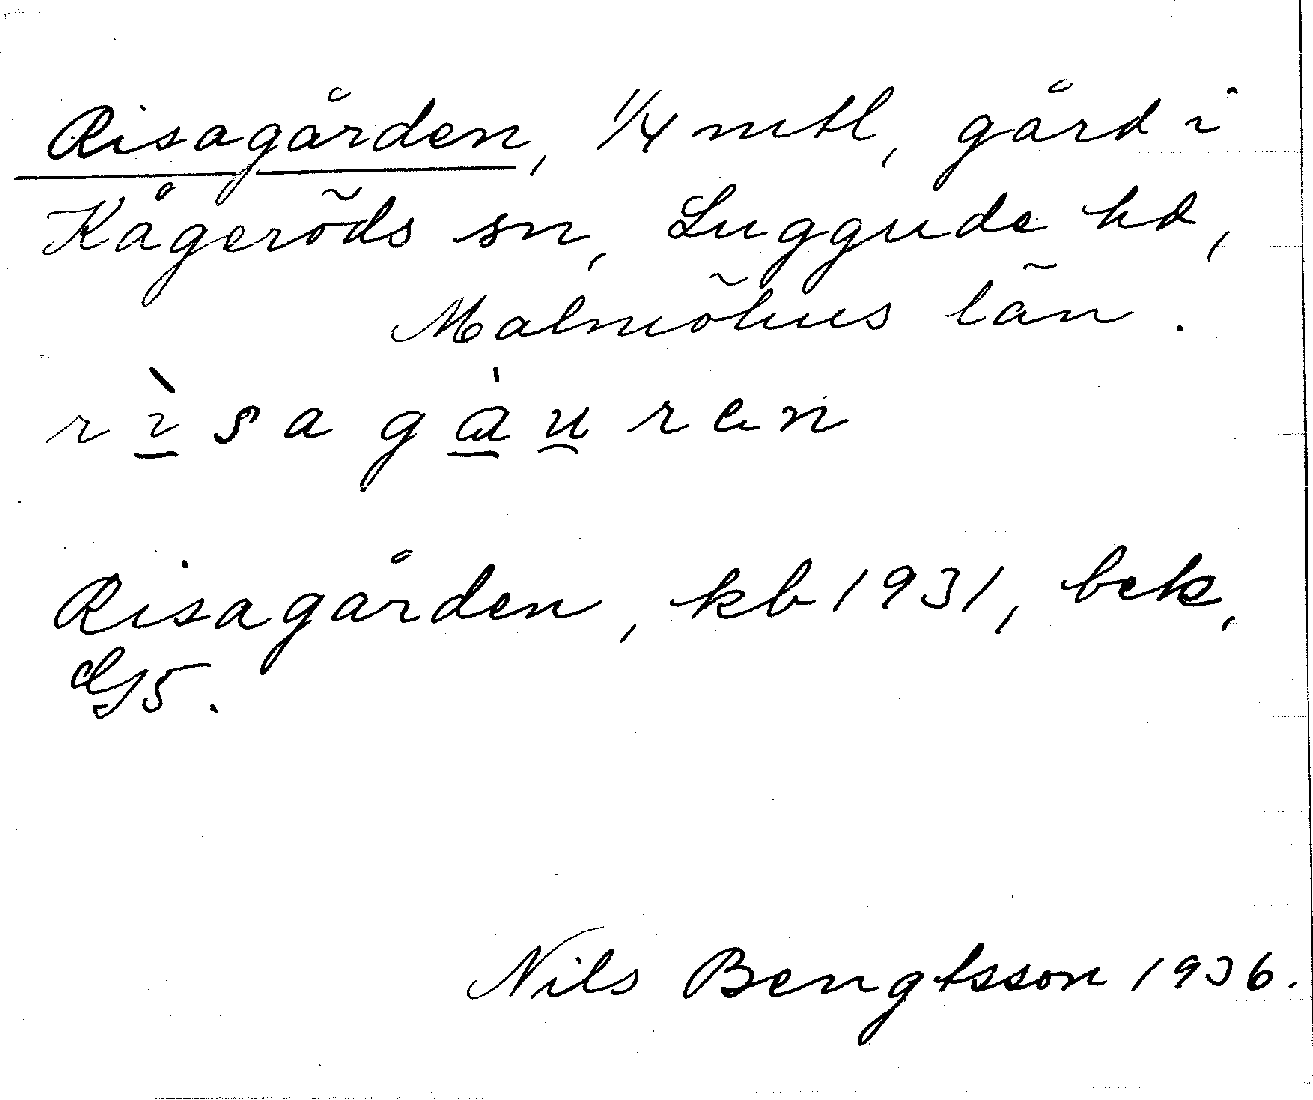 Risagården, 1/4 mtl, gård i
Kågeröds sn, Luggude hd,
Malmöhus län.
rìsagàuren
Risagården, kb 1931, bek,
G5.
Nils Bengtsson 1936.